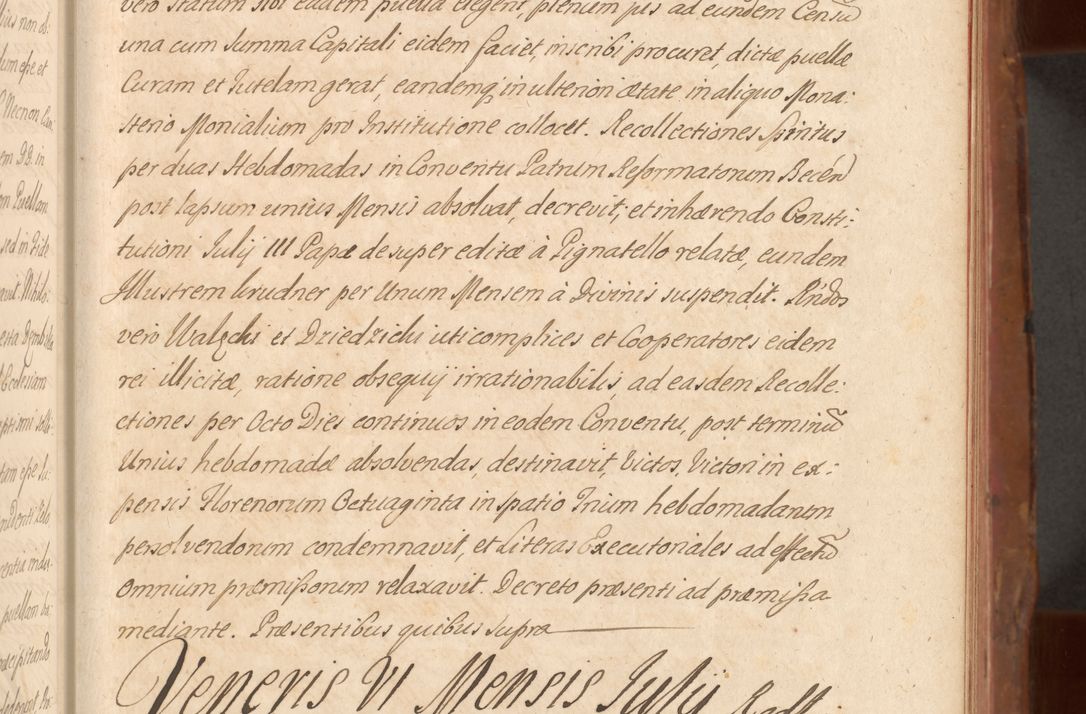 vero statum sibi eadem puella eleget, plenum jus ad eundem Censũ
una cum Summa Capitali eidem faciet, inscribi procuret, dictæ puellæ
Curam et Tutelam gerat, eandemq; in ulteriori ætate in aliquo Mona:
sterio Monialium pro Institutione collocet. Recollectiones Spiritus
per duas Hebdomadas in Conventu Patrum Reformatorum Becen
post lapsum unius Mensis absolvat, decrevit; et inhærendo Consti:
tutioni Julij III Papæ desuper editæ à Pignatello relatæ, eundem
Illustrem Grudner per Unum Mensem à Divinis suspendit. Rñdos
vero Walęcki et Dziedzicki uti complices et Cooperatores eidem
rei illicitæ, ratione obsequij irrationabilis, ad easdem Recolle:
ctiones per Octo Dies continuos in eodem Conventu, post terminũ
Unius hebdomadæ absolvendas, destinavit, Victos, Victori in ex:
pensis Florenorum Octuaginta in spatio Trium hebdomadarum
persolvendorum condemnavit, et Literas Executoriales ad effectũ
omnium præmissorum relaxavit. Decreto præsenti ad præmissa
mediante. Præsentibus quibus supra
Veneris VI Mensis Julij